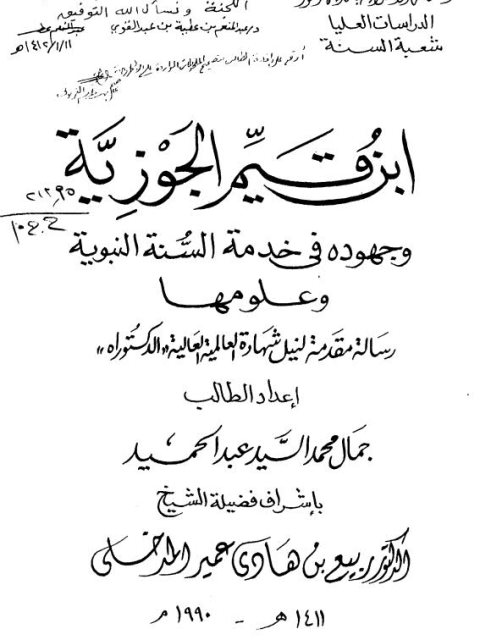 الدراسات العليا
شعبة السنة
اللجنة ونسأل الله التوفيق
د/عبدالمنعم بن عطية بن عبدالقوي
١٤١٢/١/١١هـ
ابن قَيِّم الجَوْزِيَّة
٢١٢,٩٥
وجهوده في خدمة السُّنة النبوية
وعلومها
رسالة مقدمة لنيل شهادة العالمية العالية «الدكتوراه»
إعداد الطالب
جمال محمد السَّيد عبد الحميد
بإشراف فضيلة الشيخ
الدكتور ربيع بن هادي عمير المدخلي
١٤١١ هـ - ١٩٩٠ م